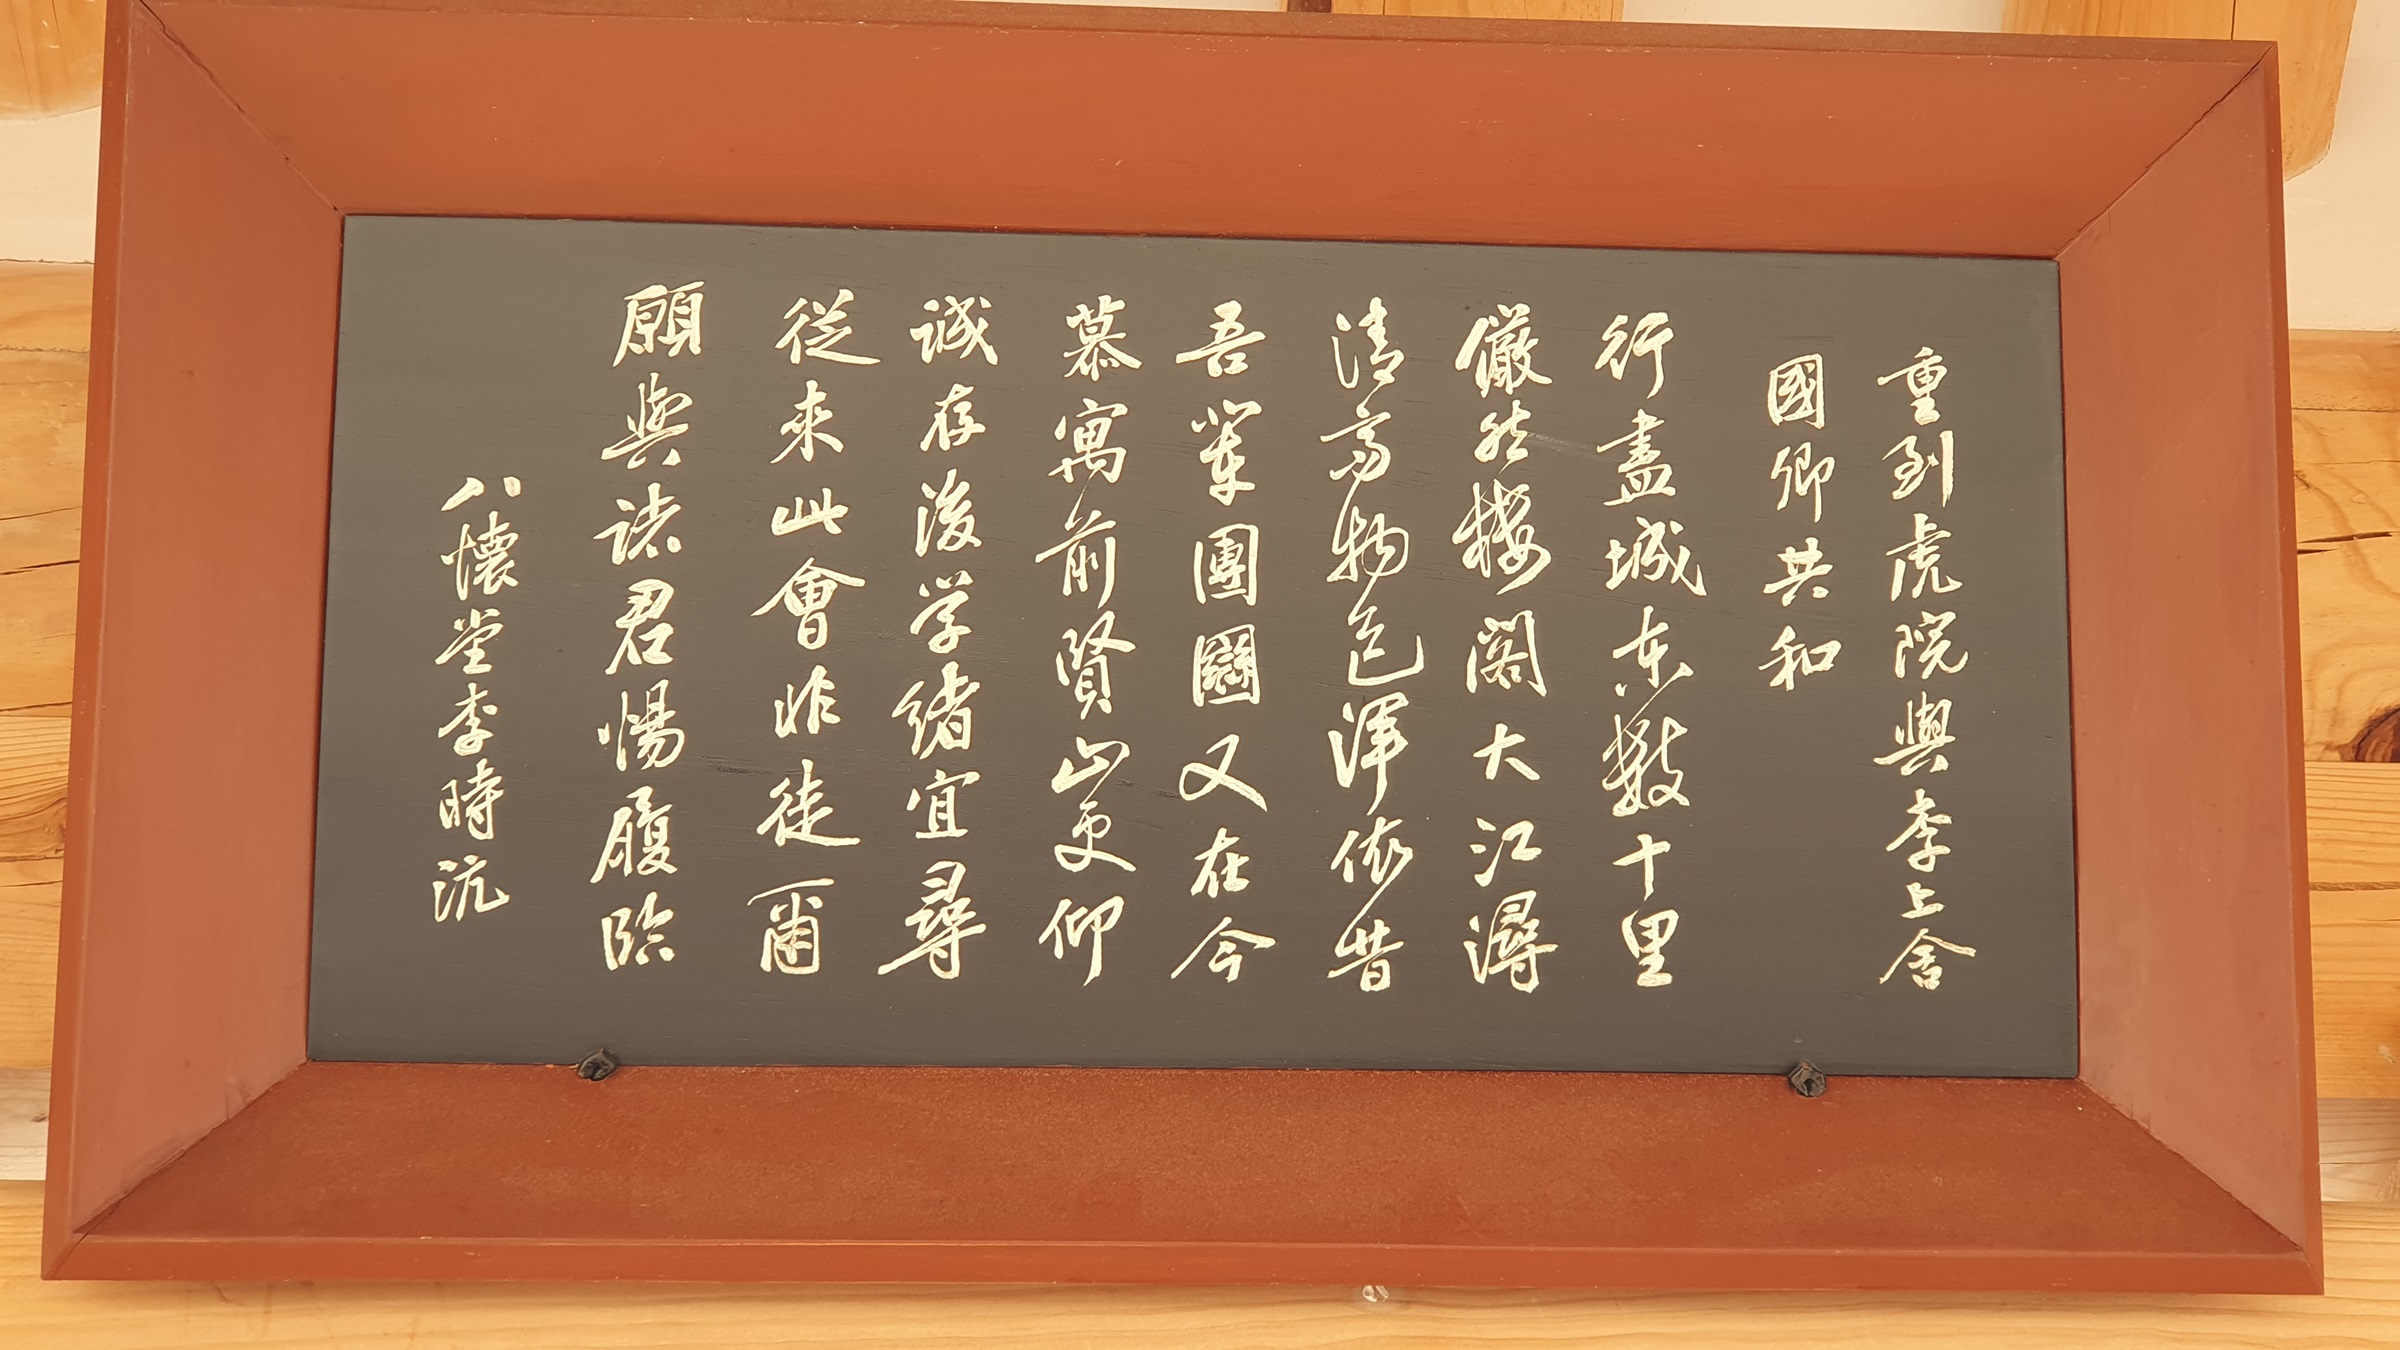 重到虎院與李上舍
國卿共和
行盡城東數十里
儼然樓閣大江潯
清高物色渾依昔
吾輩團圞又在今
慕寓前賢山更仰
誠存後学緖宜尋
從來此會非徒爾
願與諸君惕履臨
八懷堂李時沆